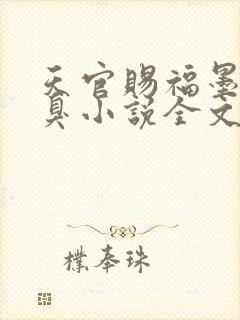 天官赐福墨
臭小说全文
樸奉珠